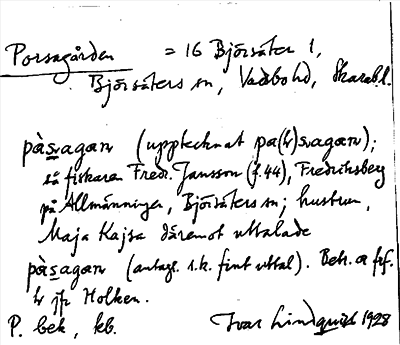 Porsagården = 16 Björsäter 1,
Björsäters sn, Vadsbo hd, Skarab.l.
pàsagaṇ (upptecknat pa(h)svagaṇ);
så fiskaren Fredr. Jansson (f. 44), Fredriksberg
på Allmänningen, Björsäters sn; hustrun,
Maja Kajsa däremot uttalade
pàsagaṇ (antagl. s.k. fint uttal). Betr. a frf.
h jfr Holken.
P. bek, kb. Ivar Lindquist 1928